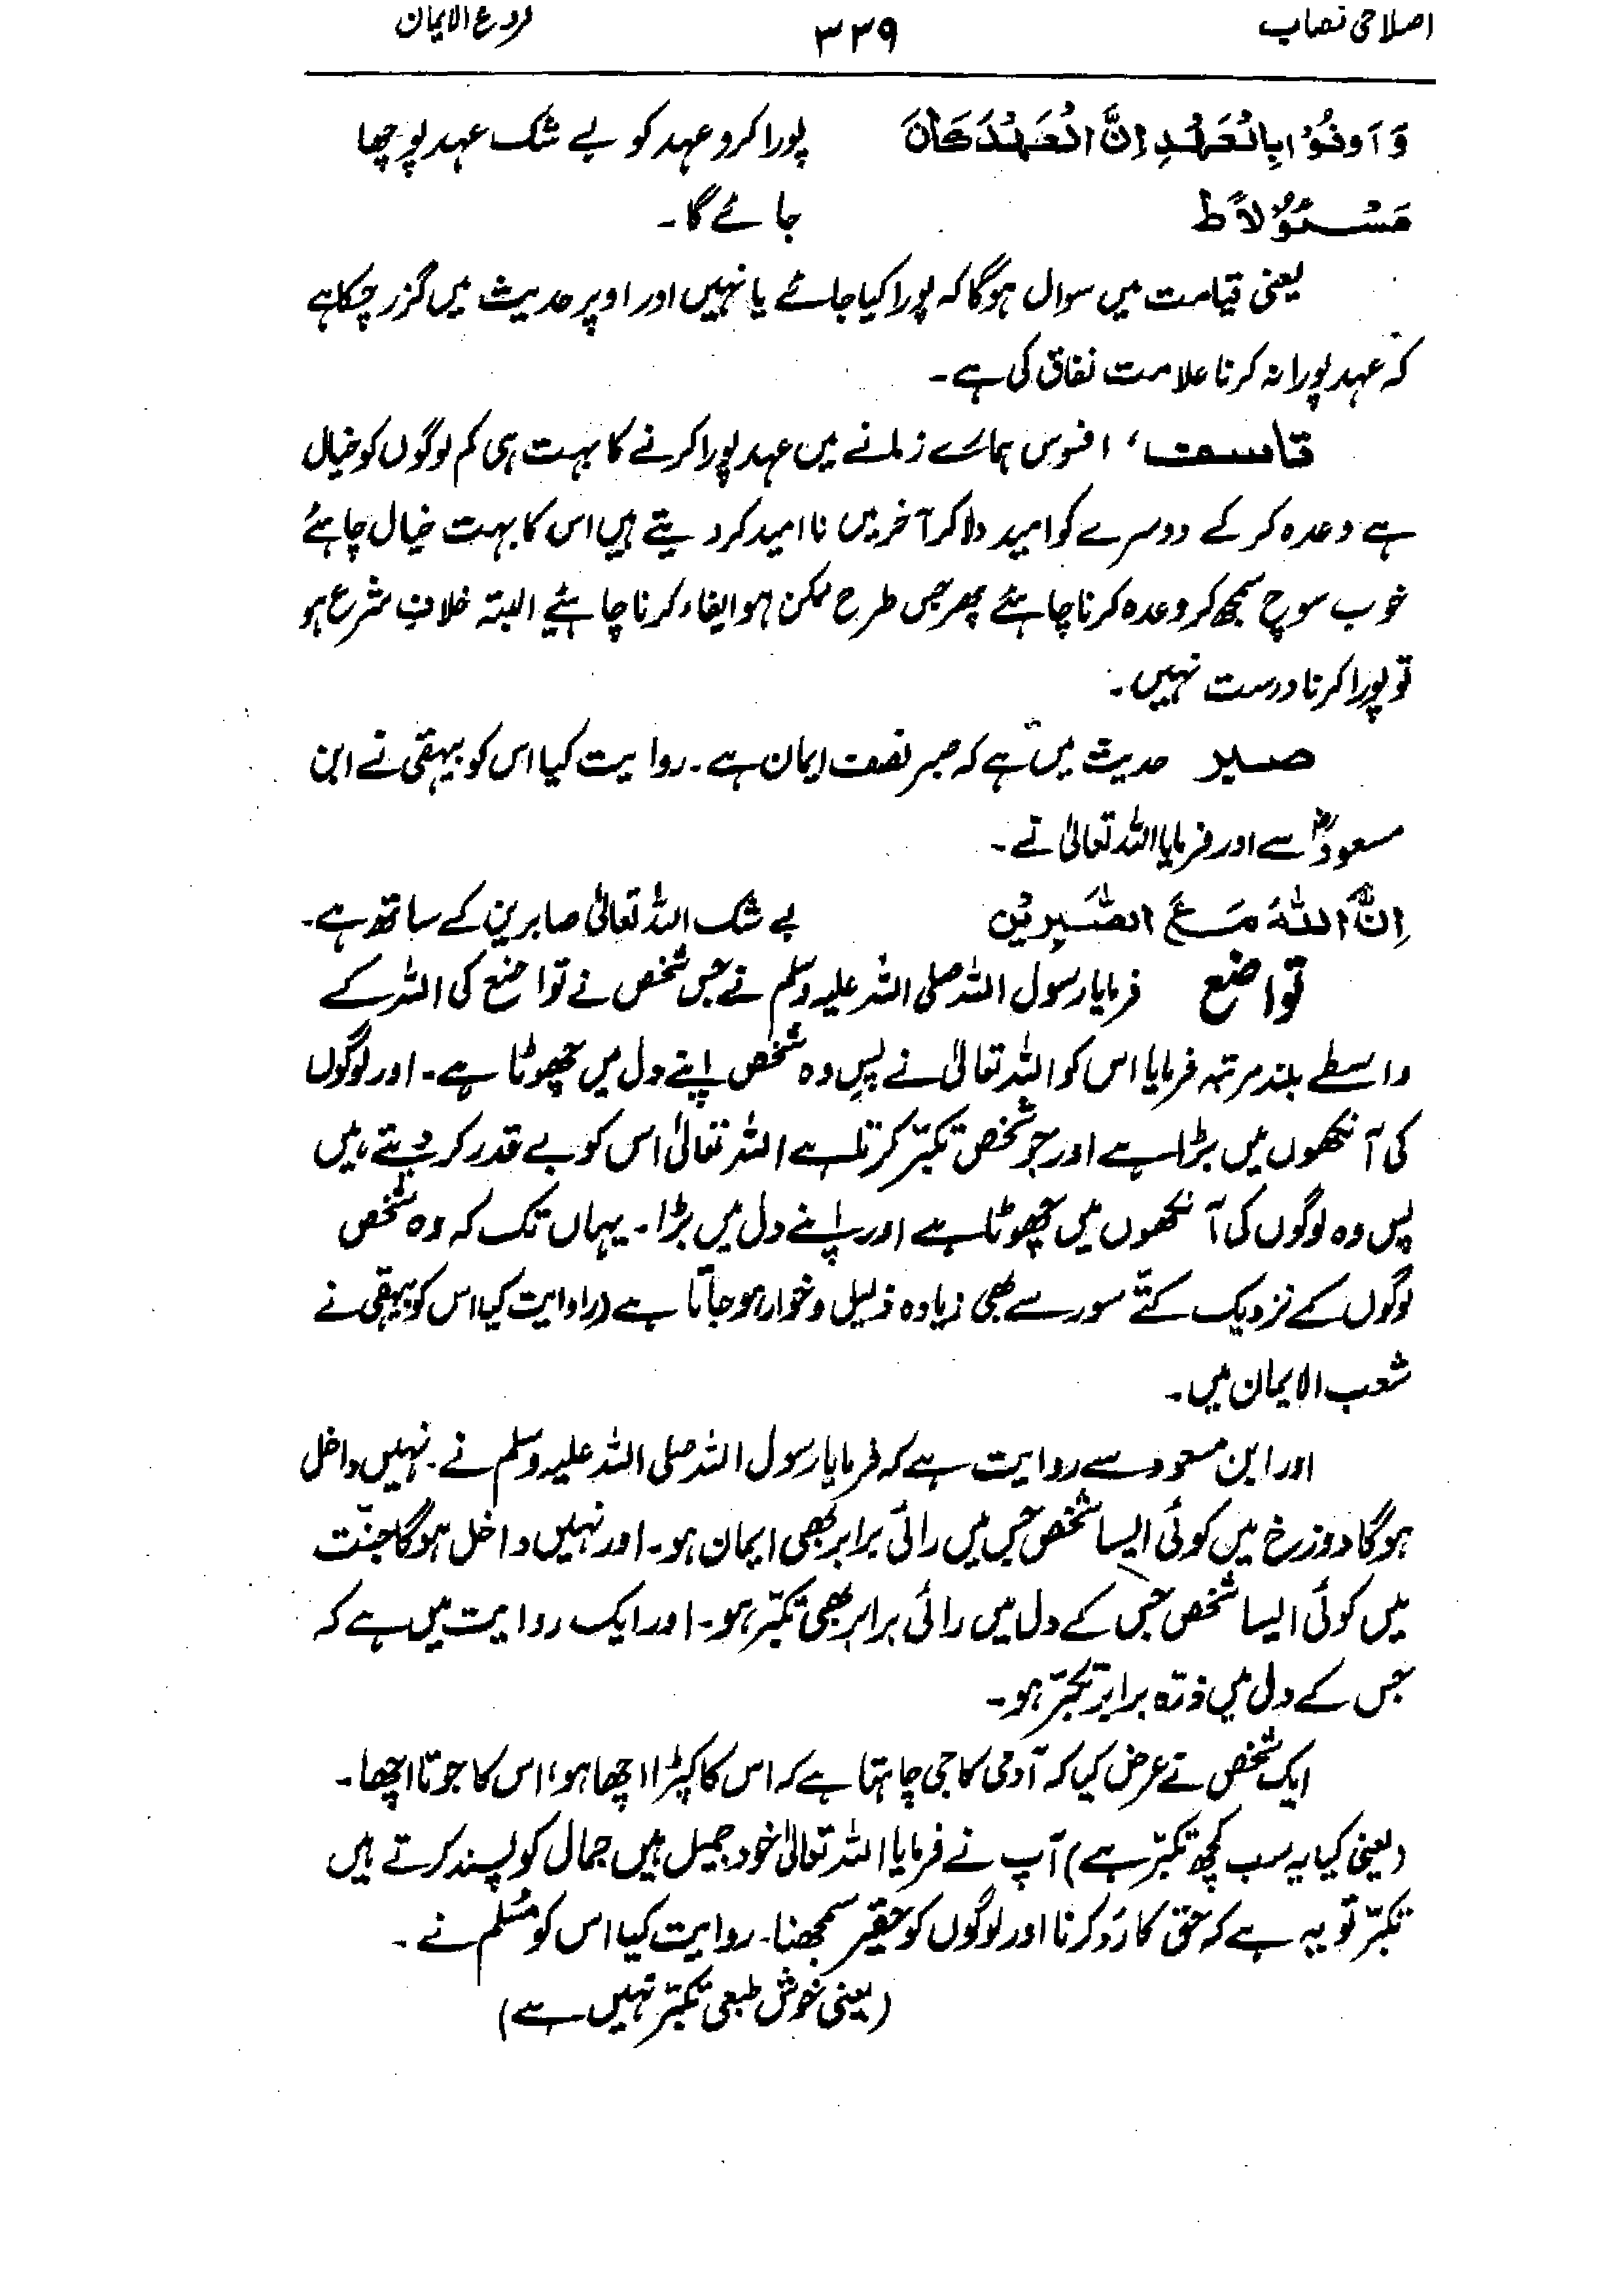 اصلاحی نصاب ۳۳۹ فروع الایمان
وَ اَوفُوْا بِالْعَهْدِ اِنَّ الْعَهْدَ كَانَ پورا کرو عہد کو بے شک عہد پوچھا
مَسْئُوْلًا ط جائے گا۔
یعنی قیامت میں سوال ہوگا کہ پورا کیا جائے یا نہیں اور اوپر حدیث میں گزر چکا ہے
کہ عہد پورا نہ کرنا علامت نفاق کی ہے۔
تاسف، افسوس ہمارے زمانے میں عہد پورا کرنے کا بہت ہی کم لوگوں کو خیال
ہے وعدہ کر کے دوسرے کو امید دلا کر آخر میں نا امید کر دیتے ہیں اس کا بہت خیال چاہئے
خوب سوچ سمجھ کر وعدہ کرنا چاہئے پھر جس طرح ممکن ہو ایفاء کرنا چاہئیے البتہ خلافِ شرع ہو
تو پورا کرنا درست نہیں۔
صبر حدیث میں ہے کہ صبر نصف ایمان ہے۔ روایت کیا اس کو بیہقی نے ابن
مسعودؓ سے اور فرمایا اللہ تعالیٰ نے۔
اِنَّ اللّٰهَ مَعَ الصّٰبِرِیْن بے شک اللہ تعالیٰ صابرین کے ساتھ ہے۔
تواضع فرمایا رسول اللہ صلی اللہ علیہ وسلم نے جس شخص نے تواضع کی اللہ کے
واسطے بلند مرتبہ فرمایا اس کو اللہ تعالیٰ نے پس وہ شخص اپنے دل میں چھوٹا ہے۔ اور لوگوں
کی آنکھوں میں بڑا ہے اور جو شخص تکبّر کرتا ہے اللہ تعالیٰ اس کو بے قدر کر دیتے ہیں
پس وہ لوگوں کی آنکھوں میں چھوٹا ہے اور اپنے دل میں بڑا۔ یہاں تک کہ وہ شخص
لوگوں کے نزدیک کتّے سور سے بھی زیادہ ذلیل و خوار ہو جاتا ہے (راوایت کیا اس کو بیہقی نے
شعب الایمان میں۔
اور ابن مسعود سے روایت ہے کہ فرمایا رسول اللہ صلی اللہ علیہ وسلم نے۔ نہیں داخل
ہوگا دوزخ میں کوئی ایسا شخص جس میں رائی برابر بھی ایمان ہو۔ اور نہیں داخل ہوگا جنّت
میں کوئی ایسا شخص جس کے دل میں رائی برابر بھی تکبّر ہو۔ اور ایک روایت میں ہے کہ
جس کے دل میں ذرّہ برابر تکبّر ہو۔
ایک شخص نے عرض کیا کہ آدمی کا جی چاہتا ہے کہ اس کا کپڑا اچھا ہو، اس کا جوتا اچھا۔
(یعنی کیا یہ سب کچھ تکبّر ہے) آپ نے فرمایا اللہ تعالیٰ خود جمیل ہیں جمال کو پسند کرتے ہیں
تکبّر تو یہ ہے کہ حق کا رَد کرنا اور لوگوں کو حقیر سمجھنا۔ روایت کیا اس کو مُسلم نے۔
(یعنی خوش طبعی تکبّر نہیں ہے)